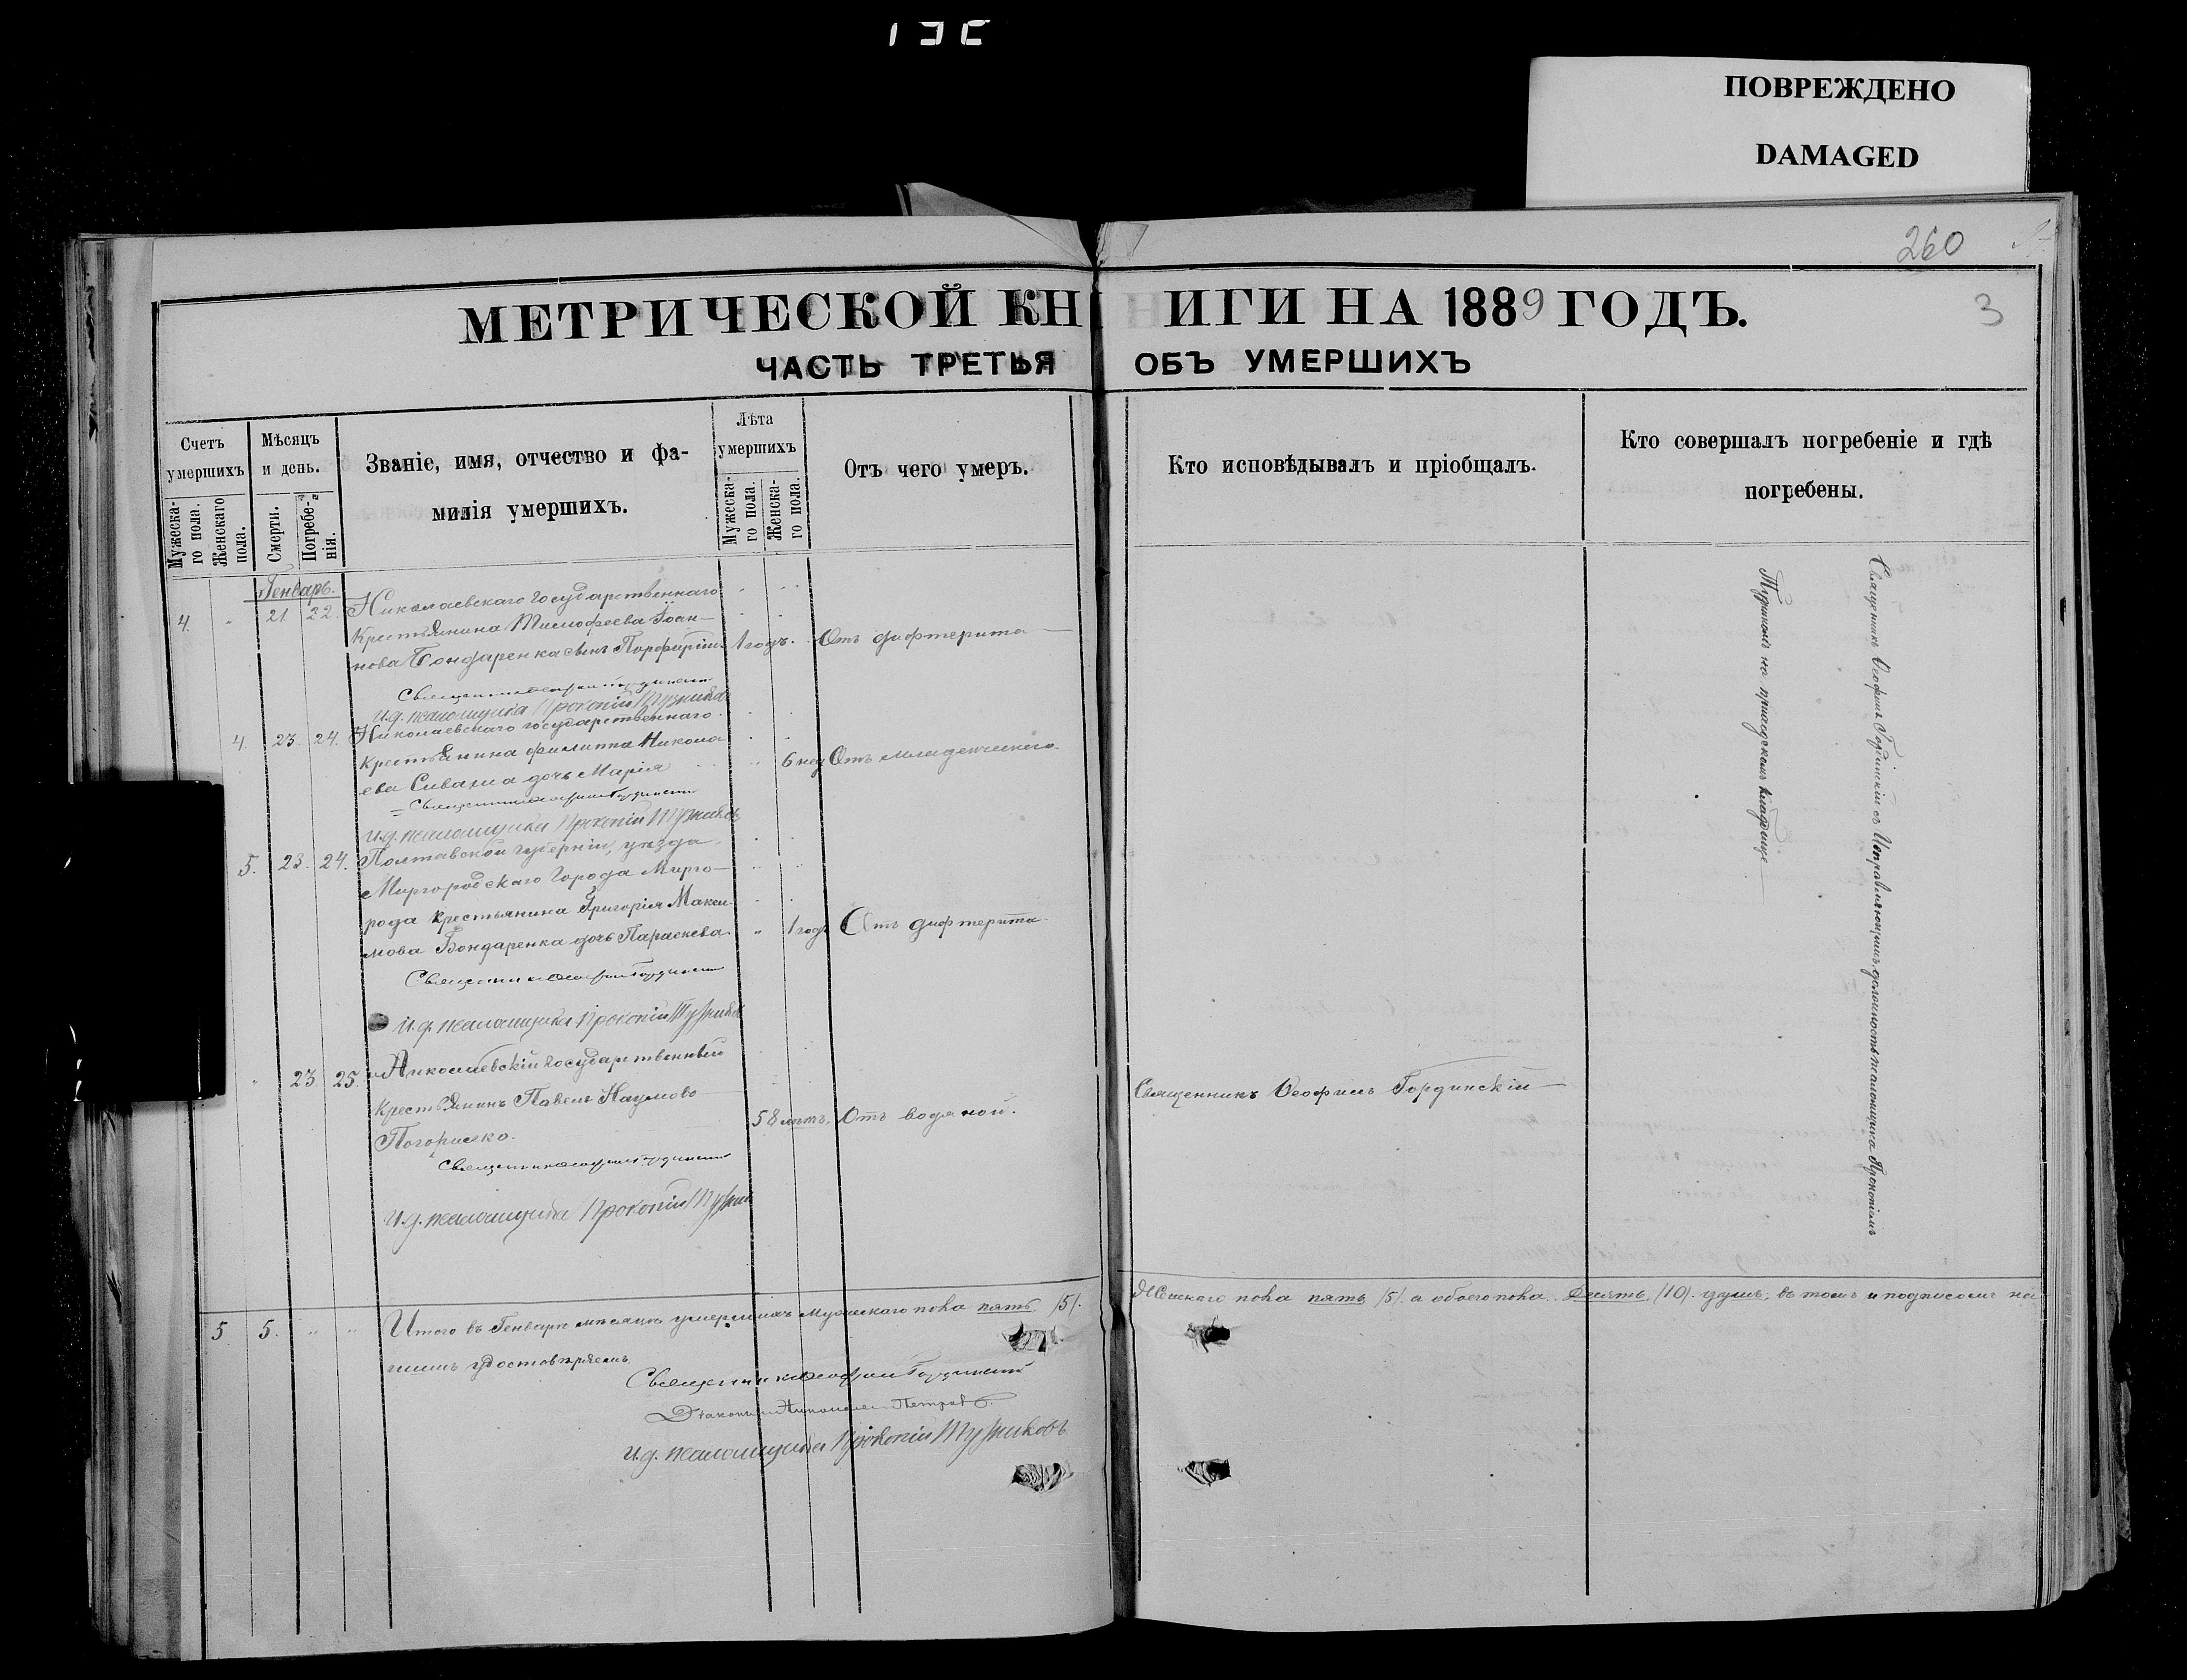 ПОВРЕЖДЕНО
DAMAGED
260
МЕТРИЧЕСКОЙ КНИГИ НА 1889 ГОДЪ.
3
ЧАСТЬ ТРЕТЬЯ ОБЪ УМЕРШИХЪ
Счетъ умершихъ
Мужеска-го пола.
Женскаго пола.
Мѣсяцъ и день.
Смерти.
Погребе-нія.
Званіе, имя, отчество и фа-
милія умершихъ.
Лѣта умершихъ
Мужеска-го пола.
Женска-го пола.
Отъ чего умеръ.
Кто исповѣдывалъ и пріобщалъ.
Кто совершалъ погребеніе и гдѣ
погребены.
Генварь.
4. 21 22. Николаевскаго государственнаго
крестьянина Тимофеева Іоан-
нова Бондаренка сынъ Порфирій 1 годъ. Отъ дифтерита
Священникъ Ѳеофилъ Гординскій
И.д. псаломщика Прокопій
4. 23. 24. Николаевскаго государственнаго
крестьянина Филиппа Никола
ева Сиваша дочь Марія 6 нед Отъ младенческаго
Священникъ Ѳеофилъ Гординскій
И.д. псаломщика Прокопій
5. 23. 24. Полтавской губерніи, уѣзда
Миргородскаго города Мирго-
рода крестьянина Григорія Макси
мова Бондаренка дочь Параскева 1 годъ Отъ дифтерита
Священникъ Ѳеофилъ Гординскій
И.д. псаломщика Прокопій
23 25. Николаевскій государственный
крестьянинъ Павелъ Наумовъ
Погорилко. 58 лѣтъ. Отъ водяной.
Священникъ Ѳеофилъ Гординскій
Священникъ Ѳеофилъ Гординскій
И.д. псаломщика Прокопій
Священникъ Ѳеофилъ Гординскій съ Исправляющимъ должность псаломщика Прокопіемъ
на приходскомъ кладбище
5 5. Итого въ Генварѣ мѣсяцѣ умершихъ мужескаго пола пять /5/. Женскаго пола пять /5/. а обоего пола. Десять /10/. душъ, въ томъ и подписомъ на
шимъ удостовѣряемъ.
Священникъ Ѳеофилъ Гординскій
Діаконъ Николай Петровъ
И.д. псаломщика Прокопій